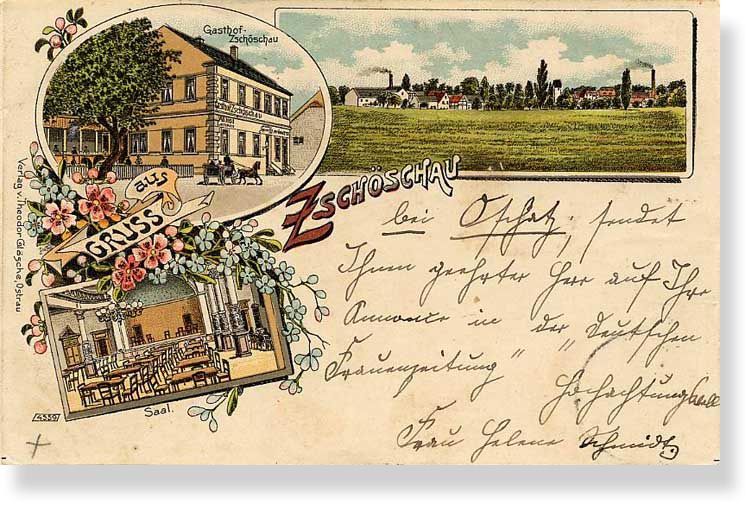 Gasthof-
Zschöschau
Gasthof Zschöschau
Verlag v. Theodor Gläsche, Ostrau
GRUSS aus
ZSCHÖSCHAU
bei Oschatz, sendet
Ihnen geehrter Herr auf Ihre
Annonce in der „Deutschen
Frauenzeitung"
Hochachtungsvoll
Frau Helene Schmidt.
Saal.
4359